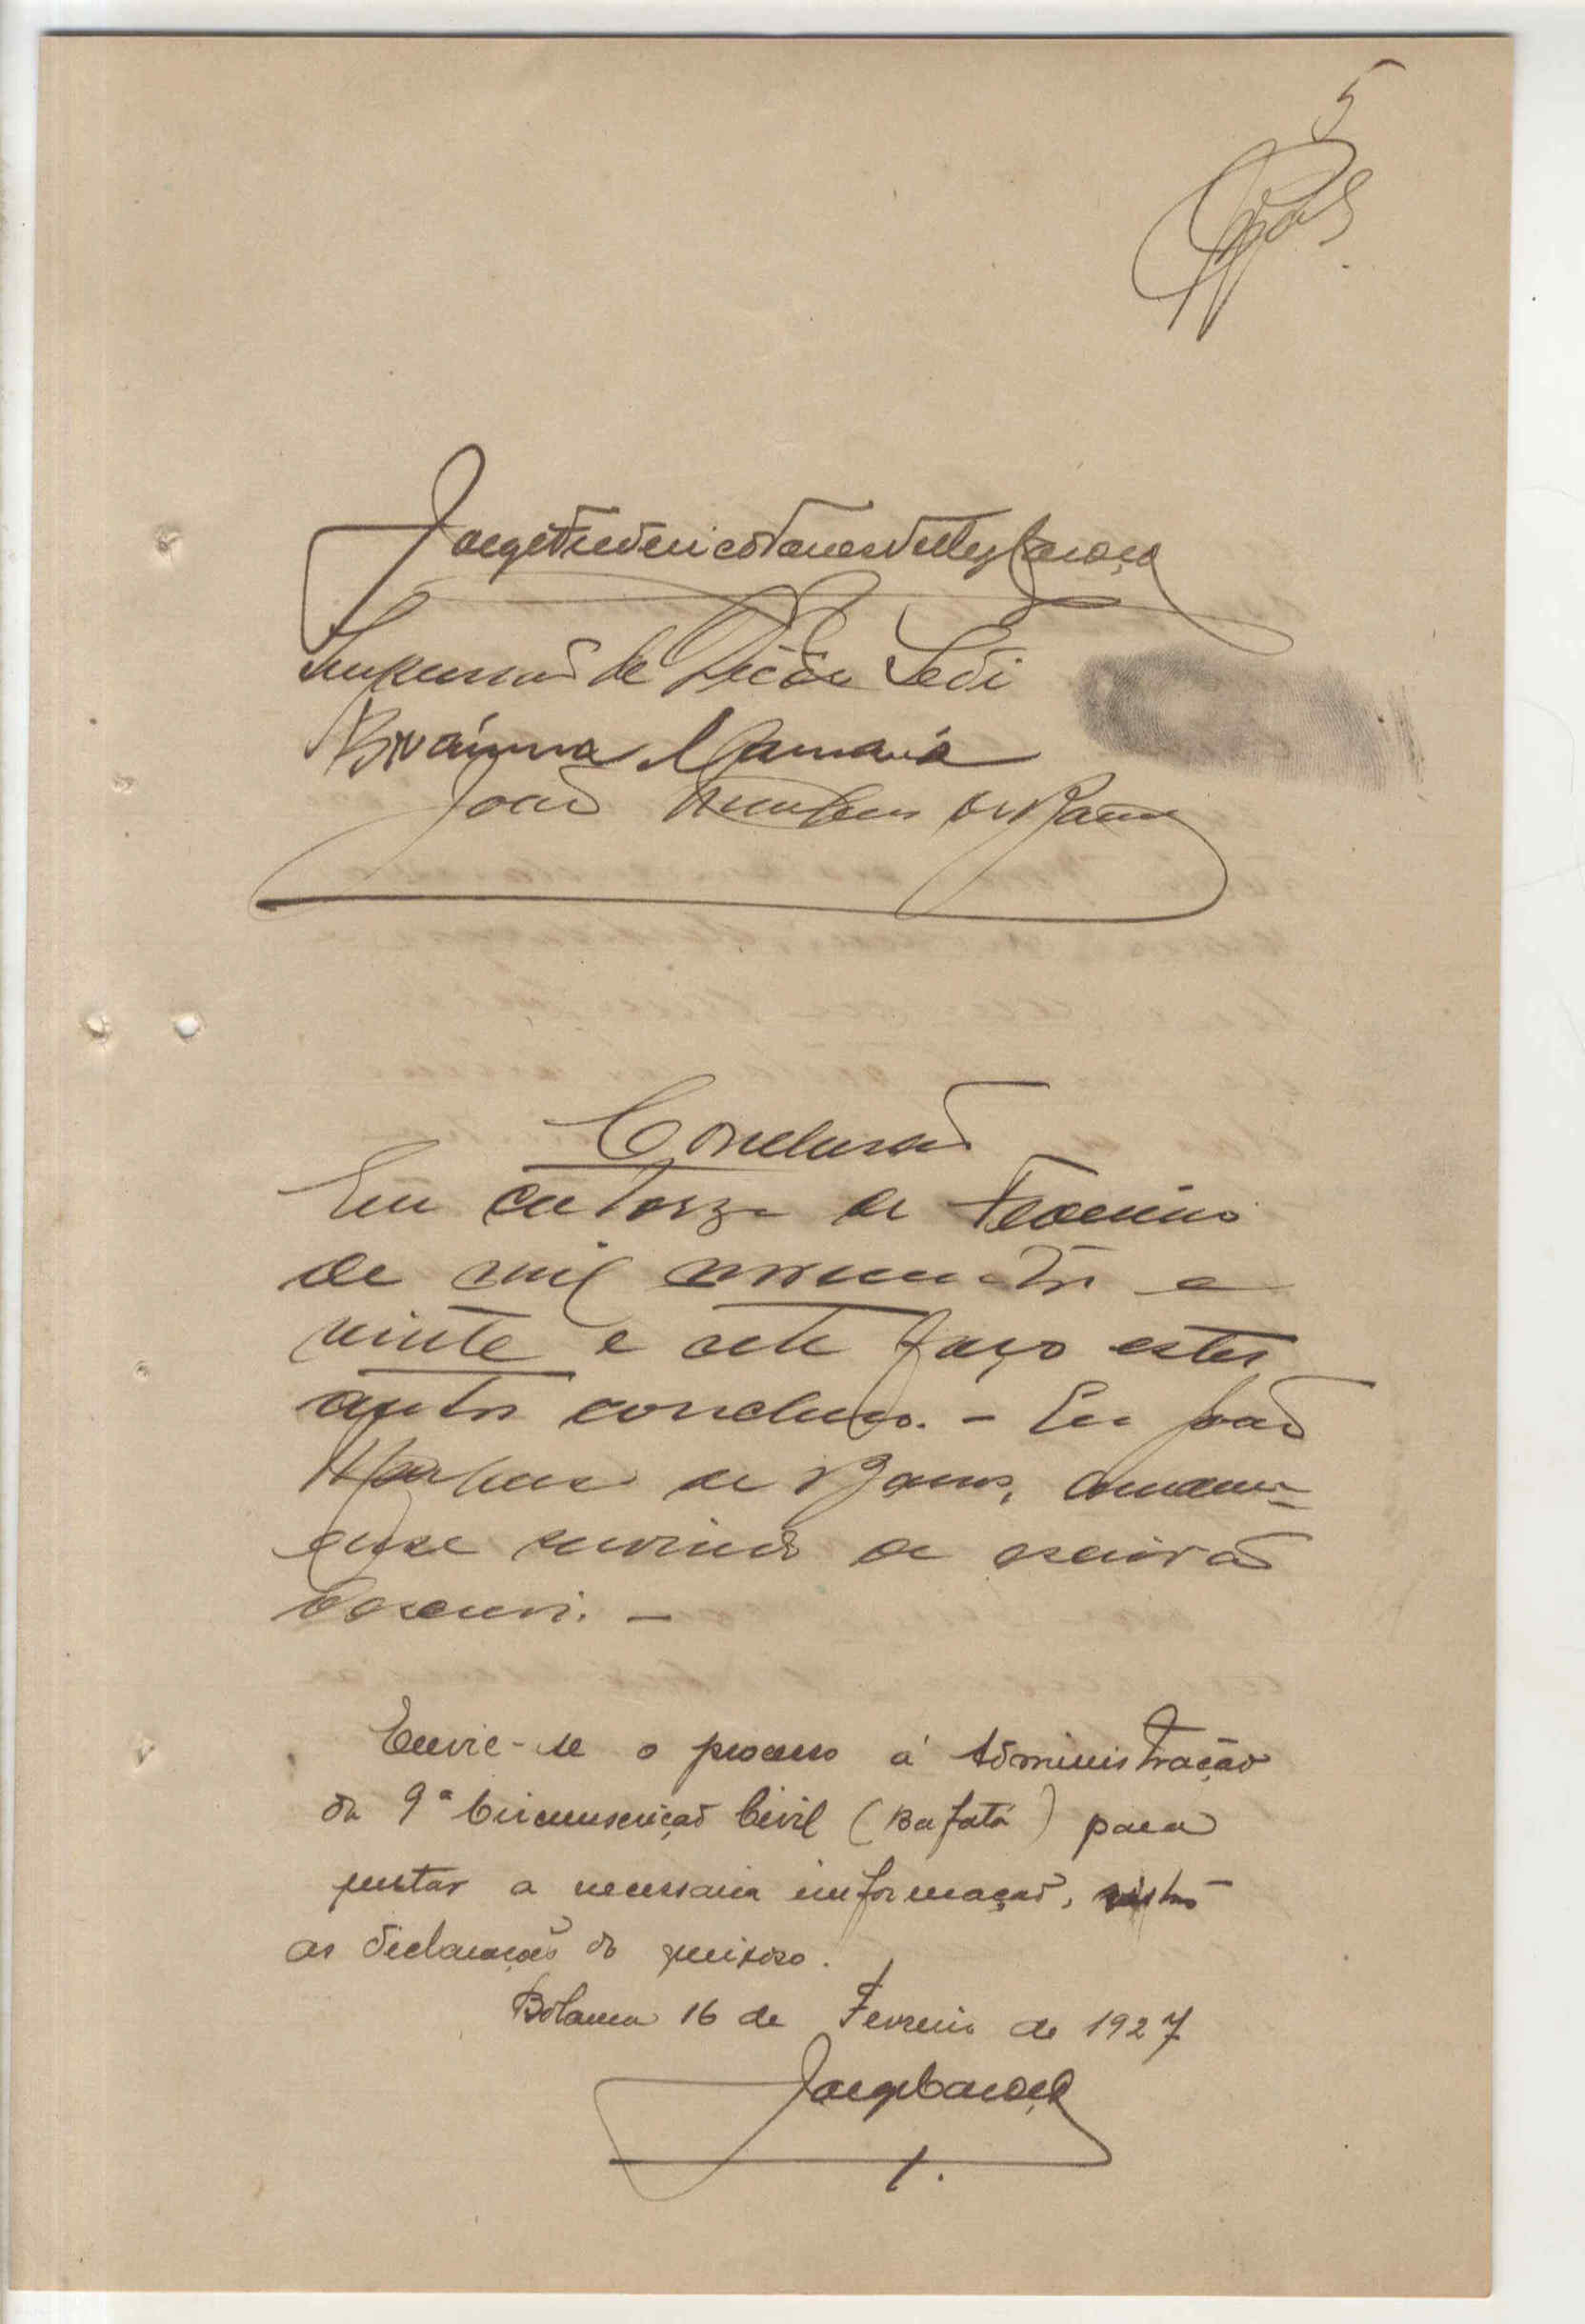 5
Jorge Frederico Torres Velez Caroço
Impressão de Sedi
Braima Mamará
João de Barros
Conclusão
Em catorze de Fevereiro
de mil novecentos e
vinte e sete faço estes
autos conclusos. - Eu João
de Barros, amanu-
ense servindo de escrivão
o escrevi. -
Envie-se o processo á Administração
da 9ª Circunscrição Civil (Bafatá) para
prestar a necessaria informação, visto
as declarações do queixoso.
Bolama 16 de Fevereiro de 1927
Jorge Caroço